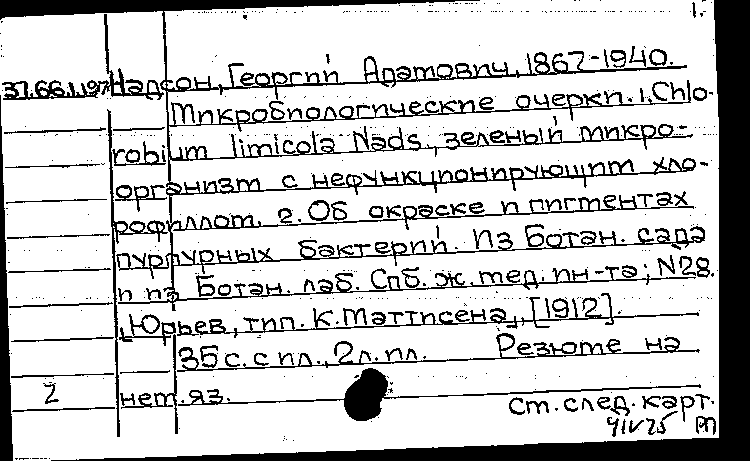 1.
37.66.1.197 Надсон, Георгий Адамович, 1867-1940.
Микробиологические очерки. 1. Chlo-
robium limicola Nads., зеленый микро-
организм с нефункционирующим хло-
рофиллом. 2. Об окраске и пигментах
пурпурных бактерий. Из Ботан. сада
и из Ботан. лаб. Спб. ж. мед. ин-та; N28.
Юрьев, тип. К. Маттисена, [1912].
35 с. с ил., 2 л. ил. Резюме на
2 нем. яз.
См. след. карт.